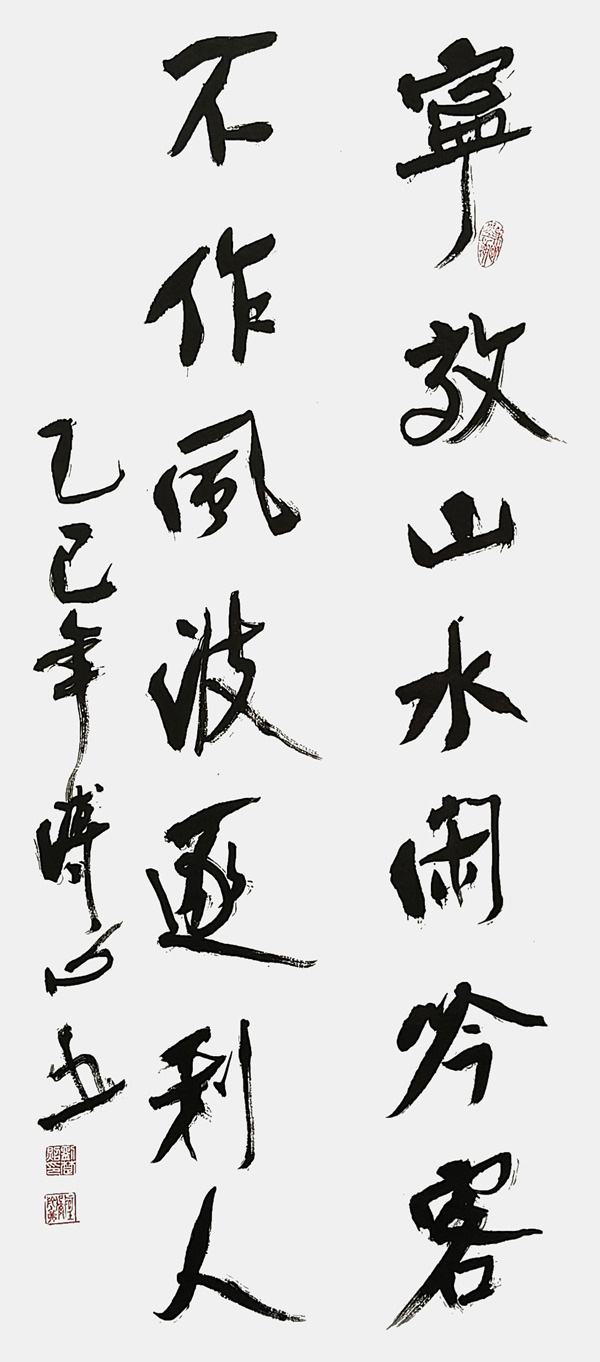 寧放山水閑吟客
不作風波逐利人
乙巳年